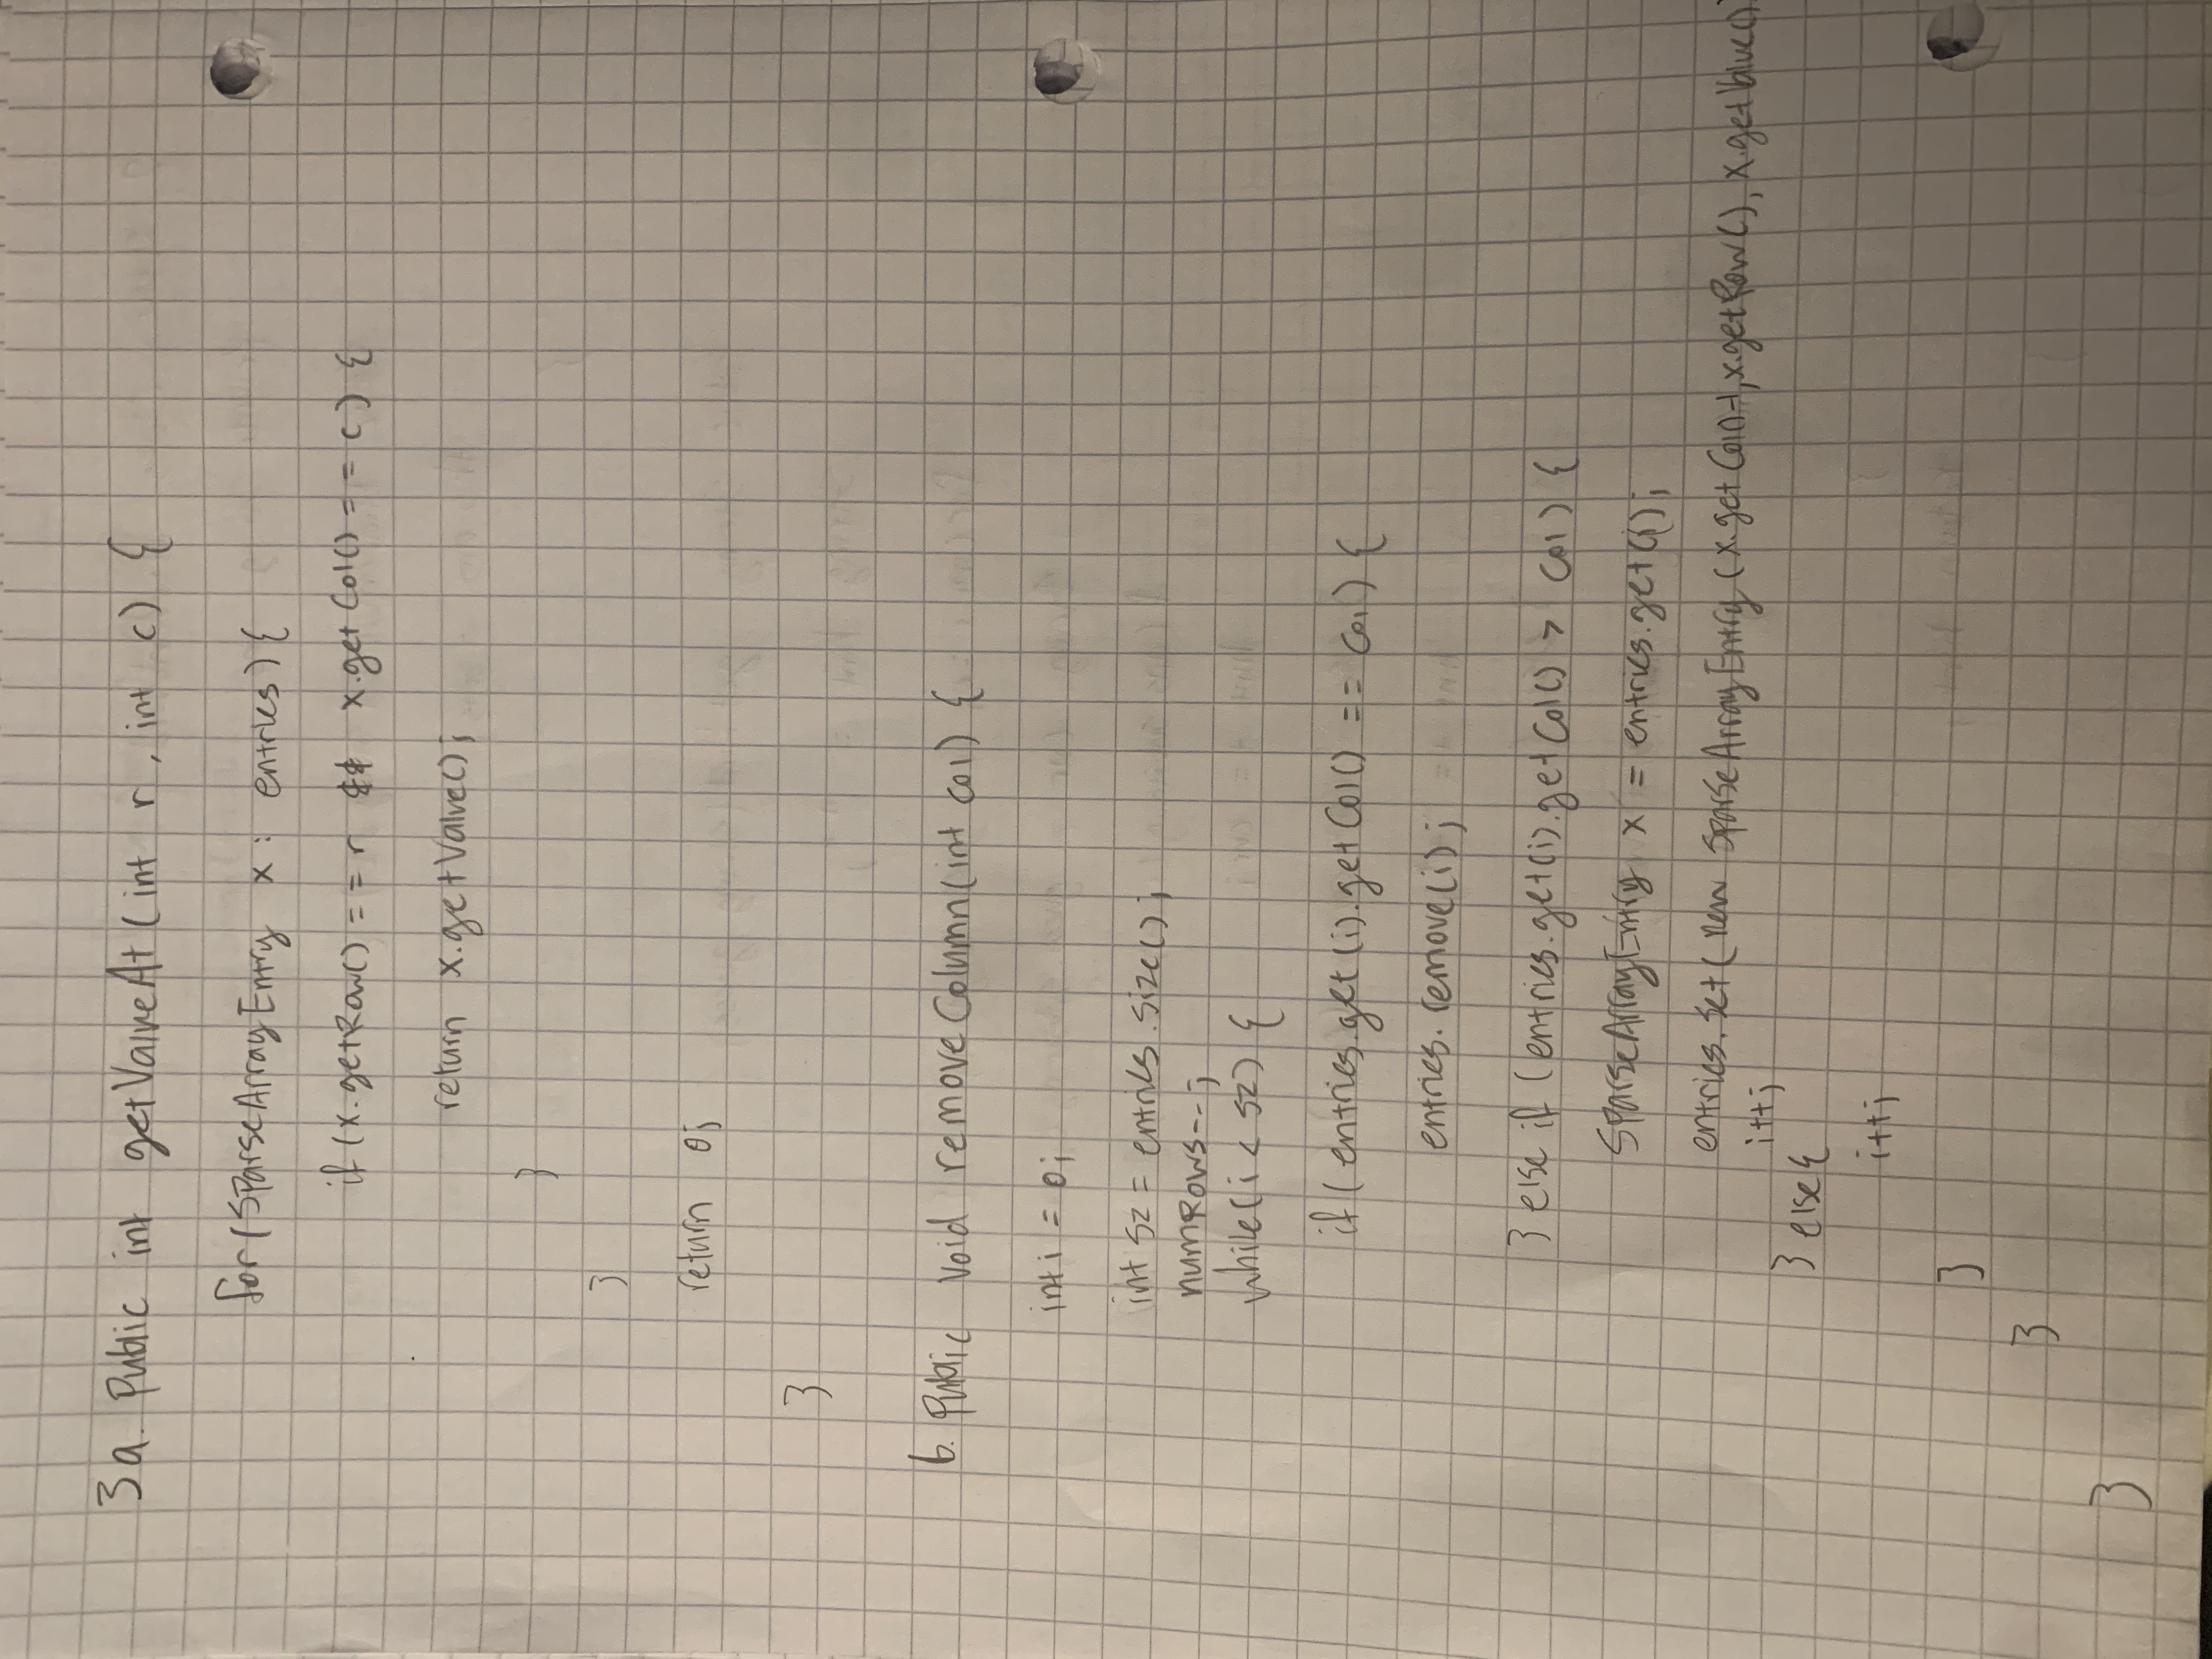 3a. Public int getValueAt(int r, int c) {
for(SparseArrayEntry x : entries){
if(x.getRow() == r && x.getCol() == c) {
return x.getValue();
}
}
return 0;
}
b. Public void removeColumn(int col) {
int i = 0;
int sz = entries.size();
numRows--;
while(i < sz) {
if(entries.get(i).getCol() == col) {
entries.remove(i);
} else if (entries.get(i).getCol() > col) {
SparseArrayEntry x = entries.get(i);
entries.set(new SparseArrayEntry(x.getCol()-1,x.getRow(), x.getValue()
i++;
} else{
i++;
}
}
}